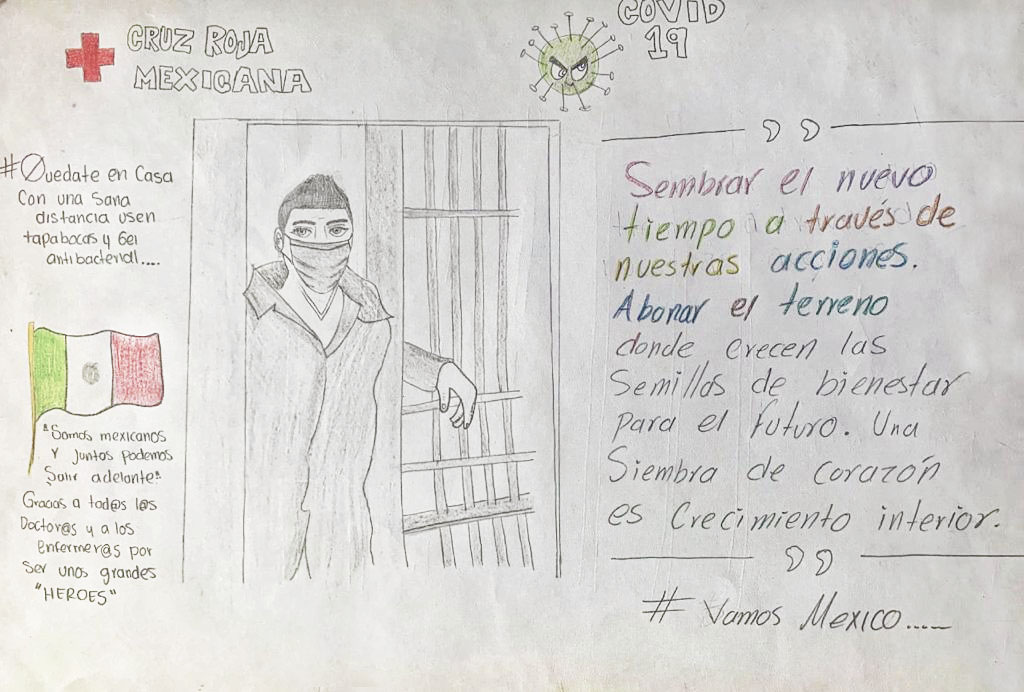 CRUZ ROJA
MEXICANA
COVID
19
#Quedate en Casa
Con una Sana
distancia usen
tapabocas y Gel
antibacterial....
"Somos mexicanos
Y Juntos podemos
Salir adelante"
Gracias a tod@s l@s
Doctor@s y a los
Enfermer@s por
Ser unos grandes
"HEROES"
Sembrar el nuevo
tiempo a través de
nuestras acciones.
Abonar el terreno
donde crecen las
Semillas de bienestar
Para el futuro. Una
Siembra de corazón
es Crecimiento interior.
# Vamos Mexico.....